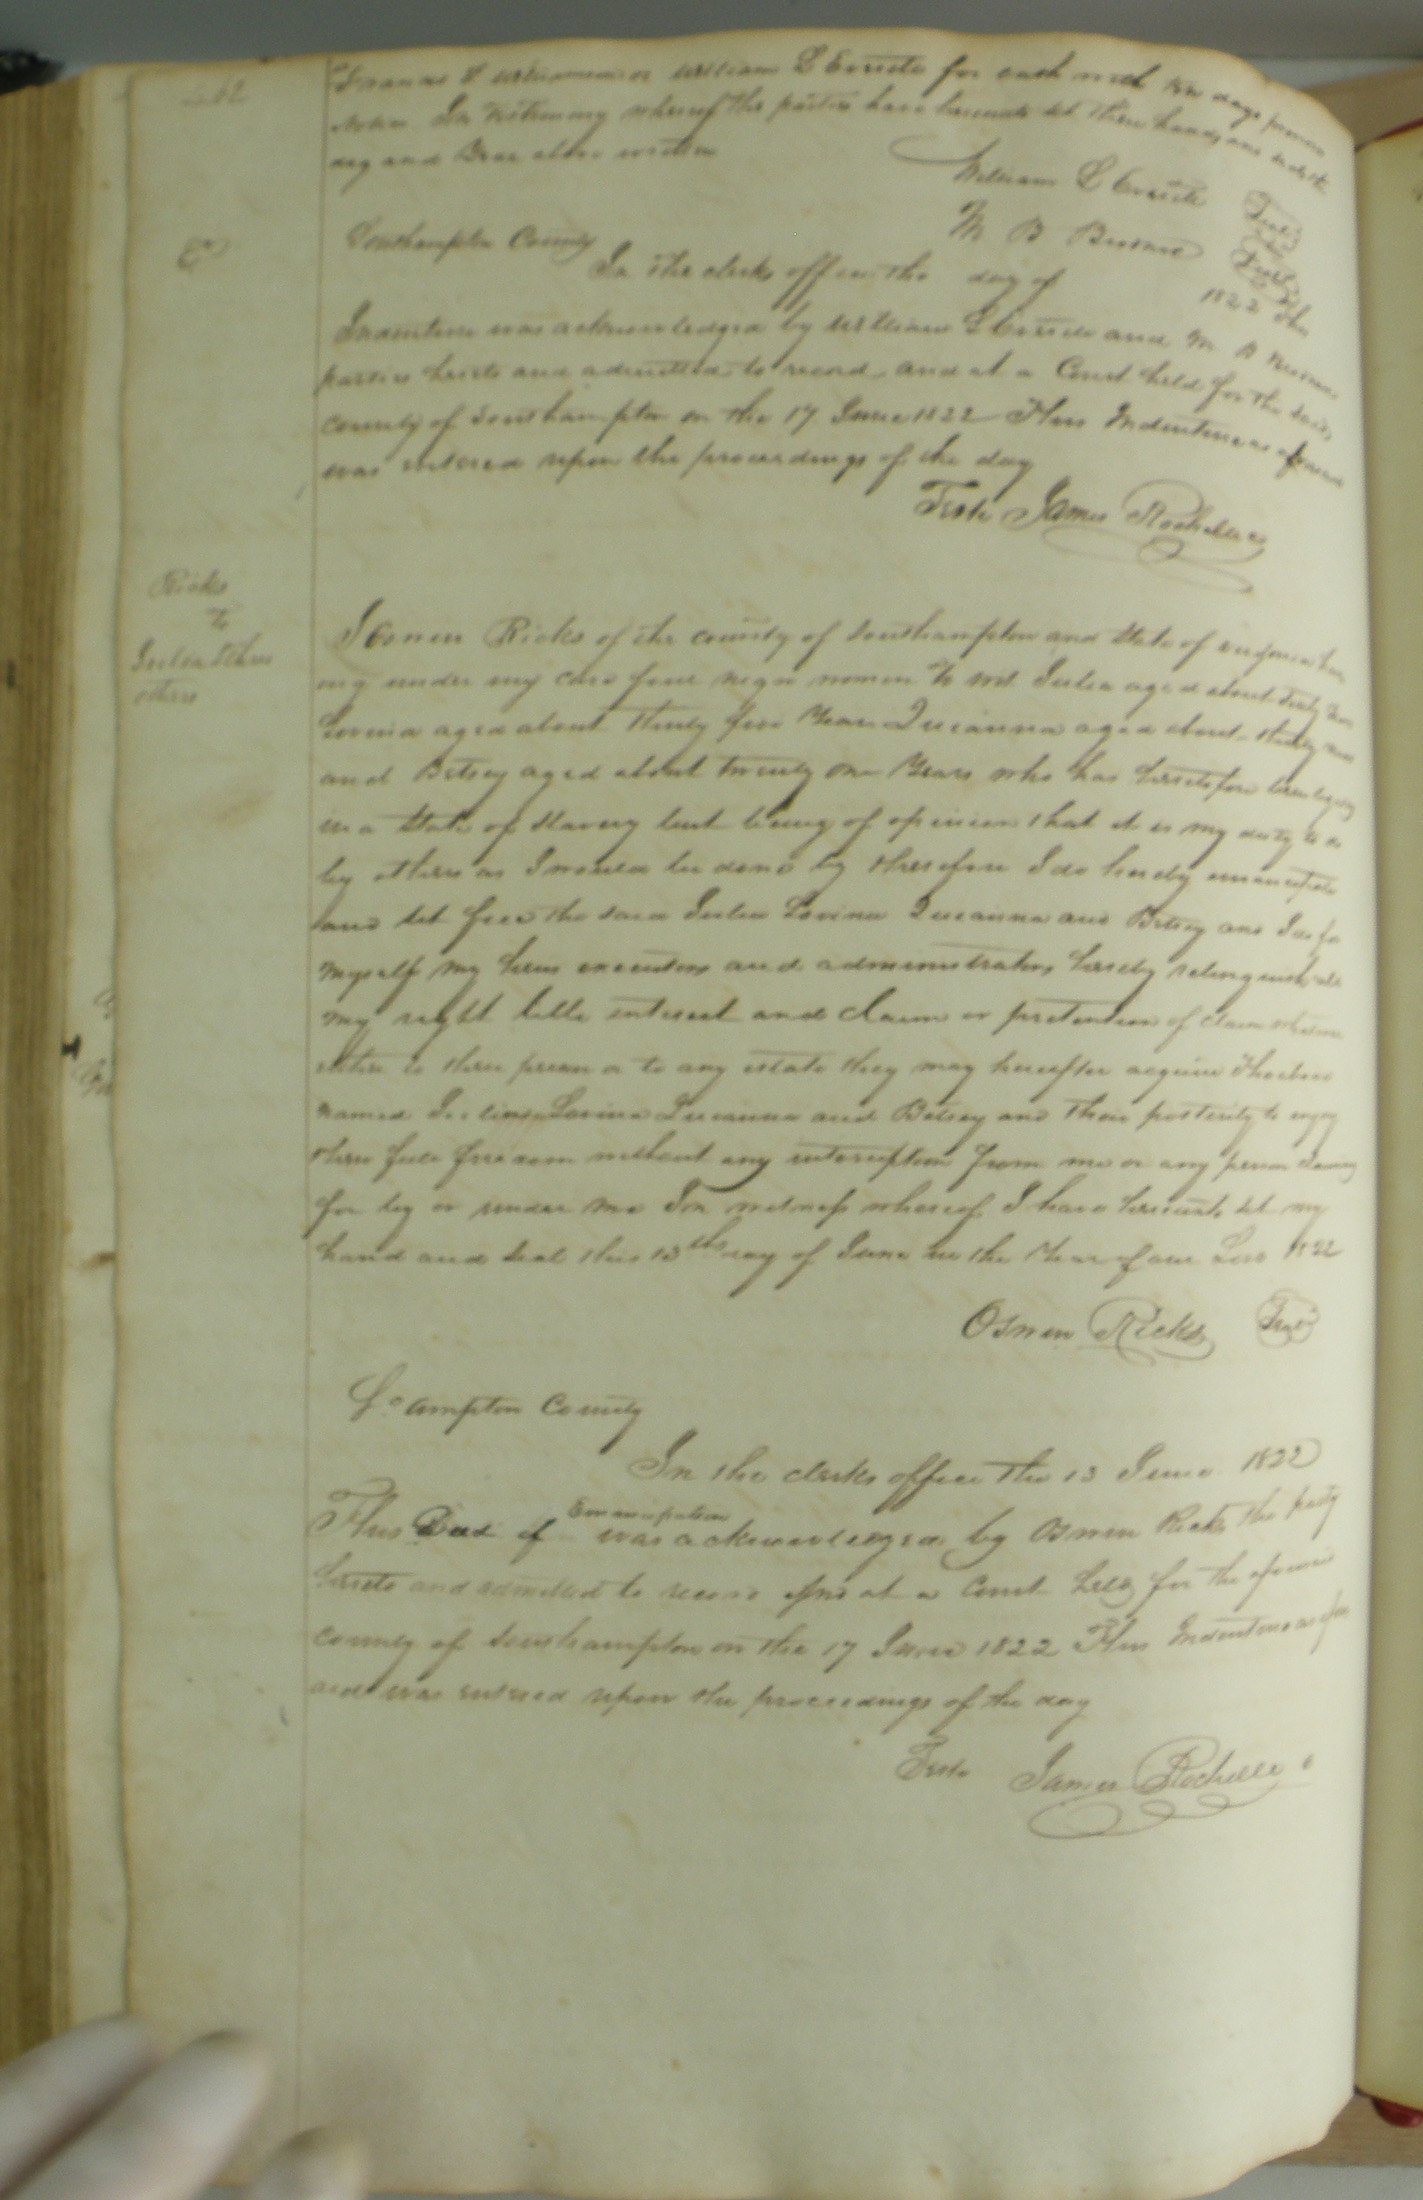 William L Everitt for cash with ten days previous
notice In testimony whereof the parties have hereunto set their hands and seals the
day and Year above written
William L Everitt Seal
M B Seal
Southampton County
In the clerks office the day of 1822 this
Indenture was acknowledged by William L Everitt and M B
parties hereto and admitted to record and at a Court held for the said
county of Southampton on the 17 June 1822 This Indenture as aforesaid
was entered upon the proceedings of the day
Teste James Rochelle
Ricks
to
others
I Osmen Ricks of the county of Southampton and State of virginia hav
ing under my care four negro women To wit aged about
Lovina aged about thirty four Years aged about thirty
and Betsey aged about twenty one Years who has heretofore been
in a state of slavery but being of opinion that it is my duty to do
by others as I would be done by therefore I do hereby emancipate
and set free the said Lovina and Betsey and I do for
myself my heirs executors and administrators hereby relinquish all
my right title interest and claim or pretention of claim
either to there person or to any estate they may hereafter acquire
named Lovina and Betsey and their posterity to enjoy
there full freedom without any interruption from me or any person claiming
for by or under me In witness whereof I have hereunto set my
hand and seal this 13th day of June in the Year of our Lord 1822
Osmen Ricks Seal
So ampton County
In the clerks office the 13 June 1822
This Deed of Emancipation was acknowledged by Osmen Ricks the party
hereto and admitted to record And at a Court held for the aforesaid
county of Southampton on the 17 June 1822 This Indenture as afore
said was entered upon the proceedings of the day
Teste James Rochelle